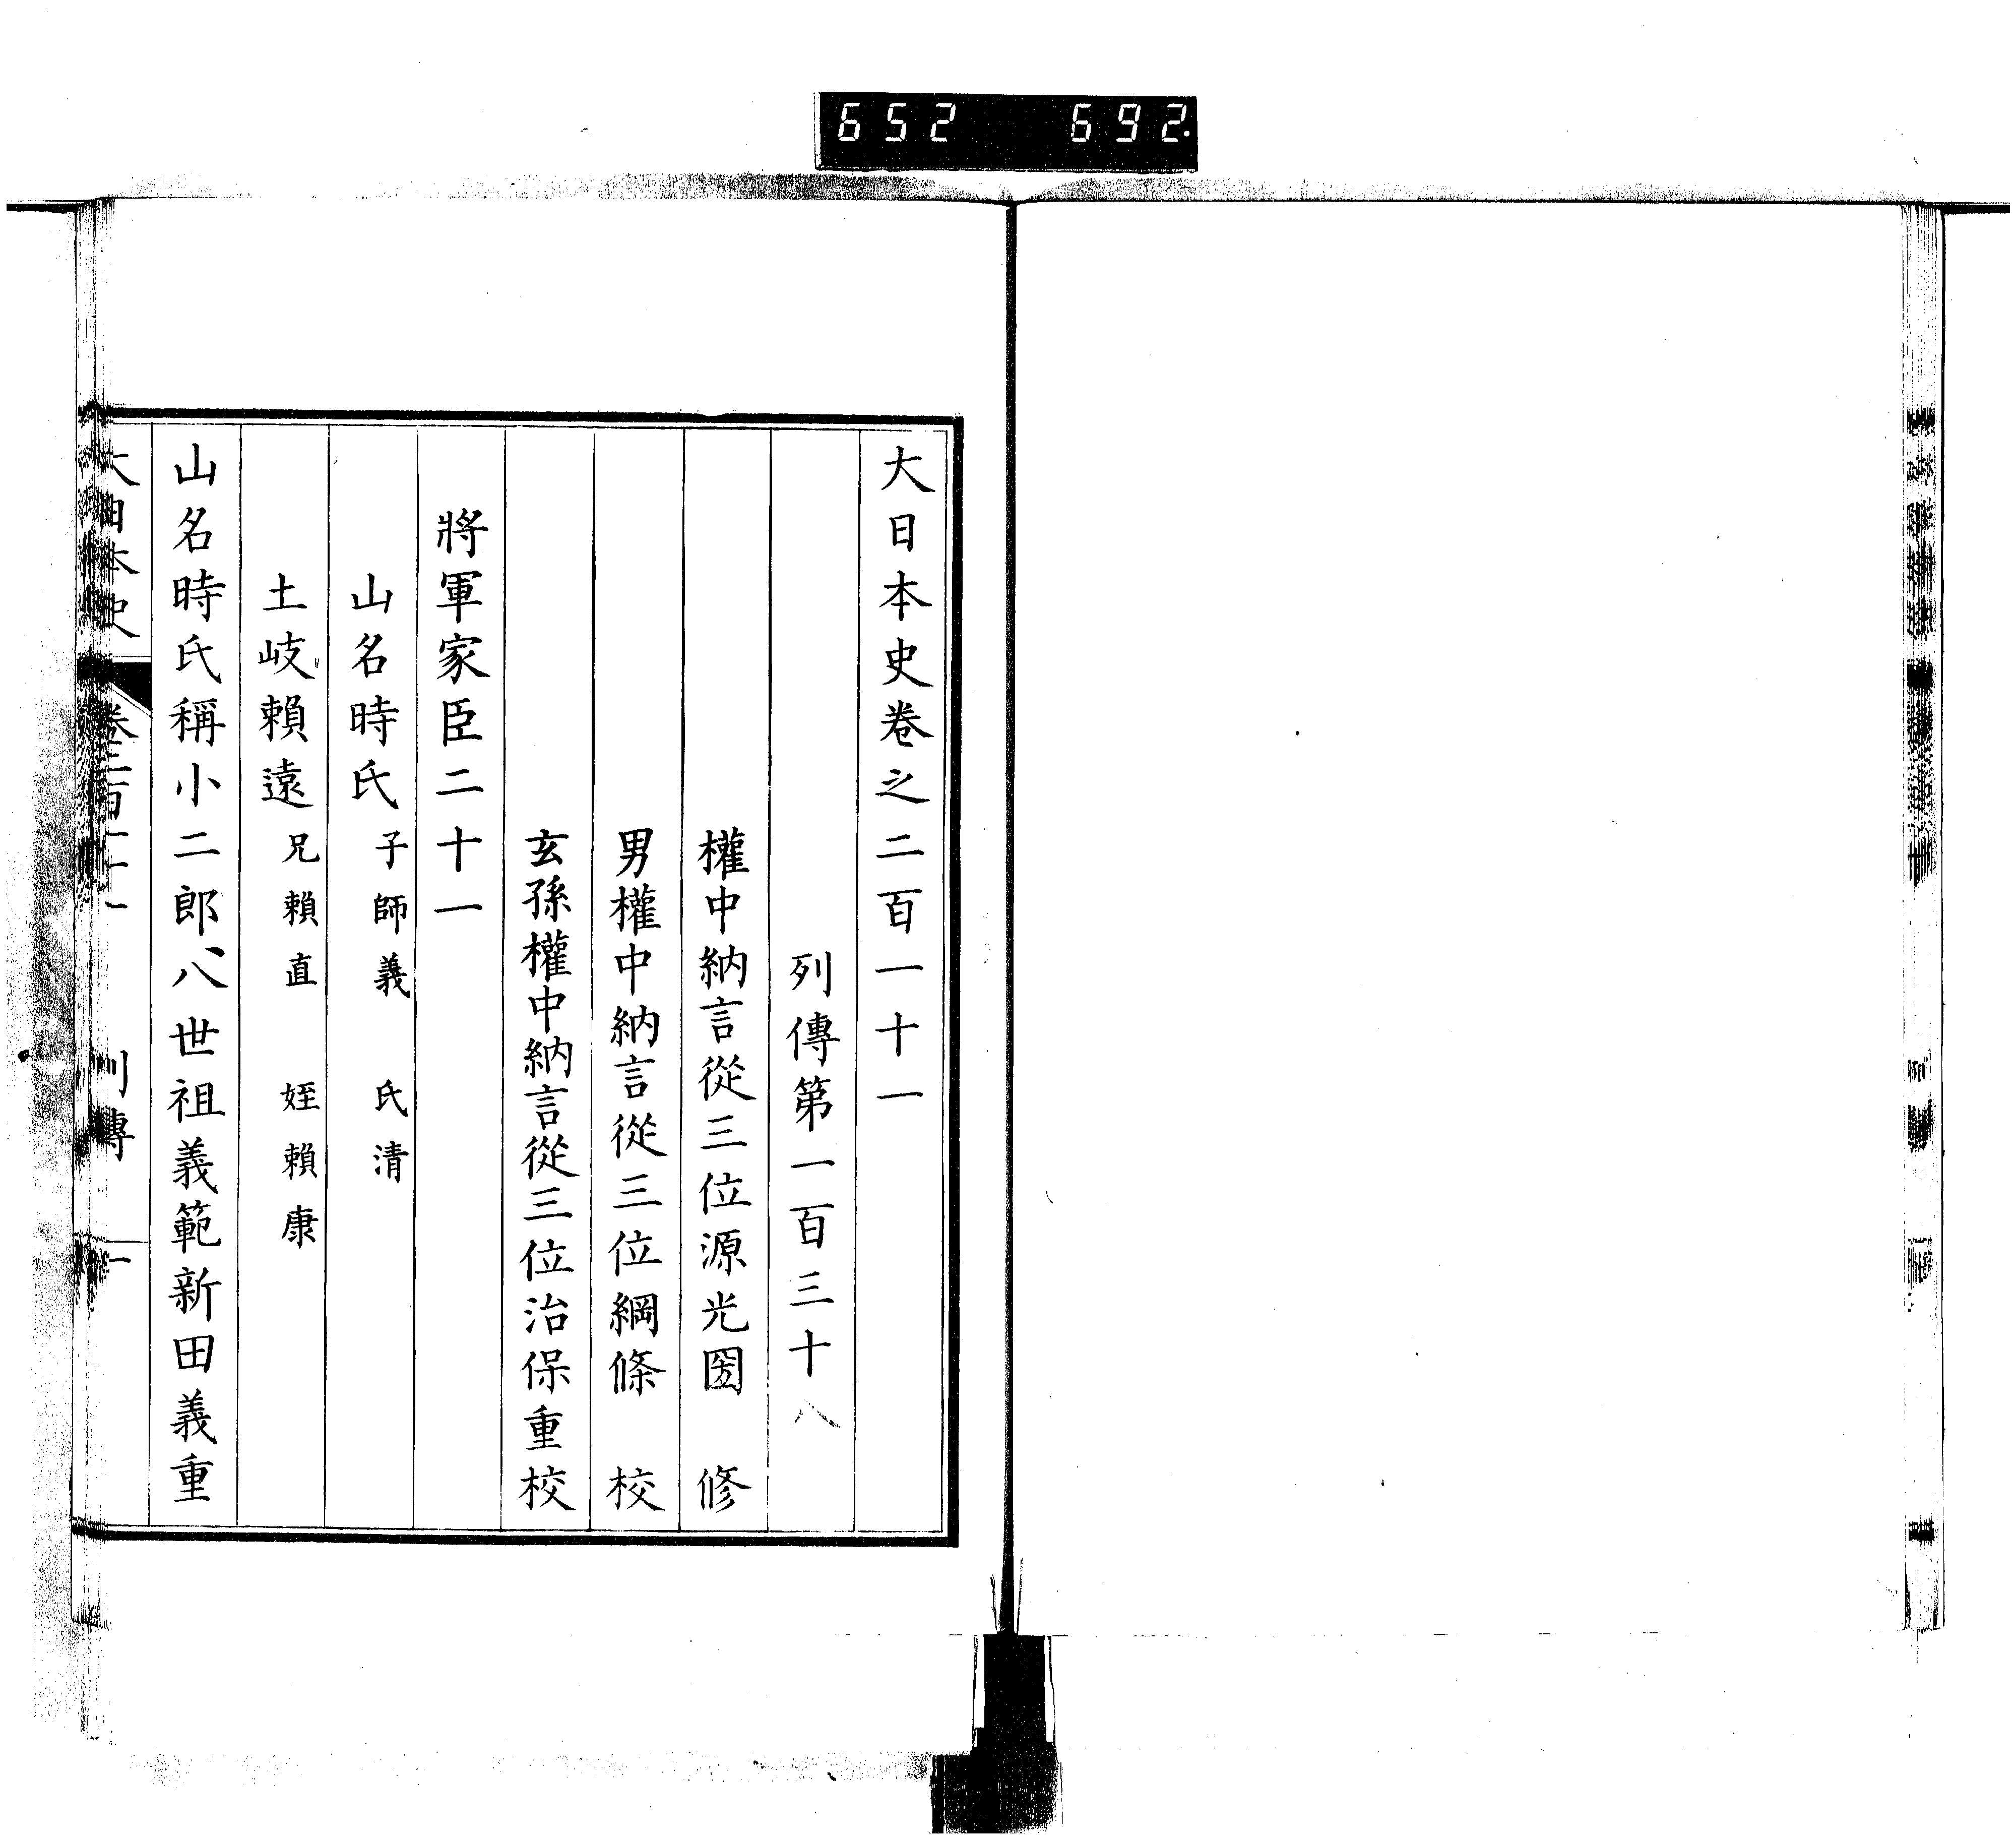 652 692.
大日本史卷之二百一十一
列傳第一百三十八
權中納言從三位源光圀 修
男權中納言從三位綱條 校
玄孫權中納言從三位治保重校
將軍家臣二十一
山名時氏 子師義 氏清
土岐賴遠 兄賴直 姪賴康
山名時氏稱小二郎八世祖義範新田義重
大日本史 卷二百一十一 列傳 一